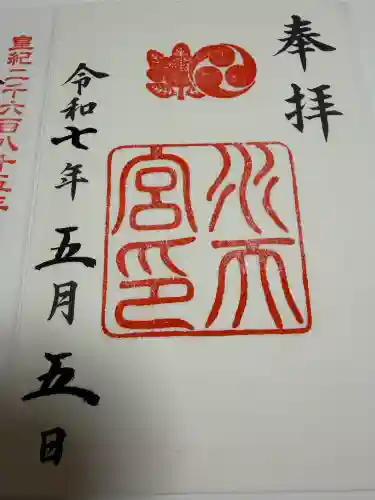 奉拝
水天
宮印
令和七年五月五日
皇紀二千六百八十五年